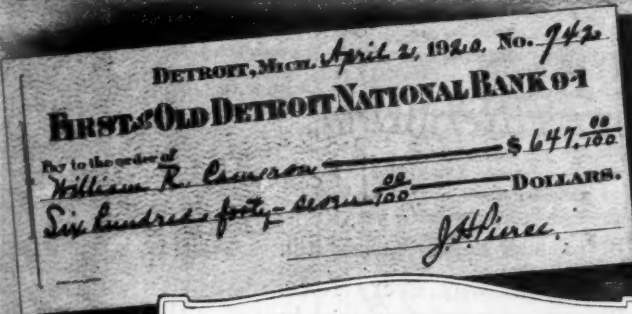 DETROIT, MICH. April 2, 1920. No. 742
FIRST AND OLD DETROIT NATIONAL BANK 9-1
Pay to the order of $ 647.00/100
William R. Cameron
Six hundred forty-seven 00/100 DOLLARS.
J.H. Pierce.